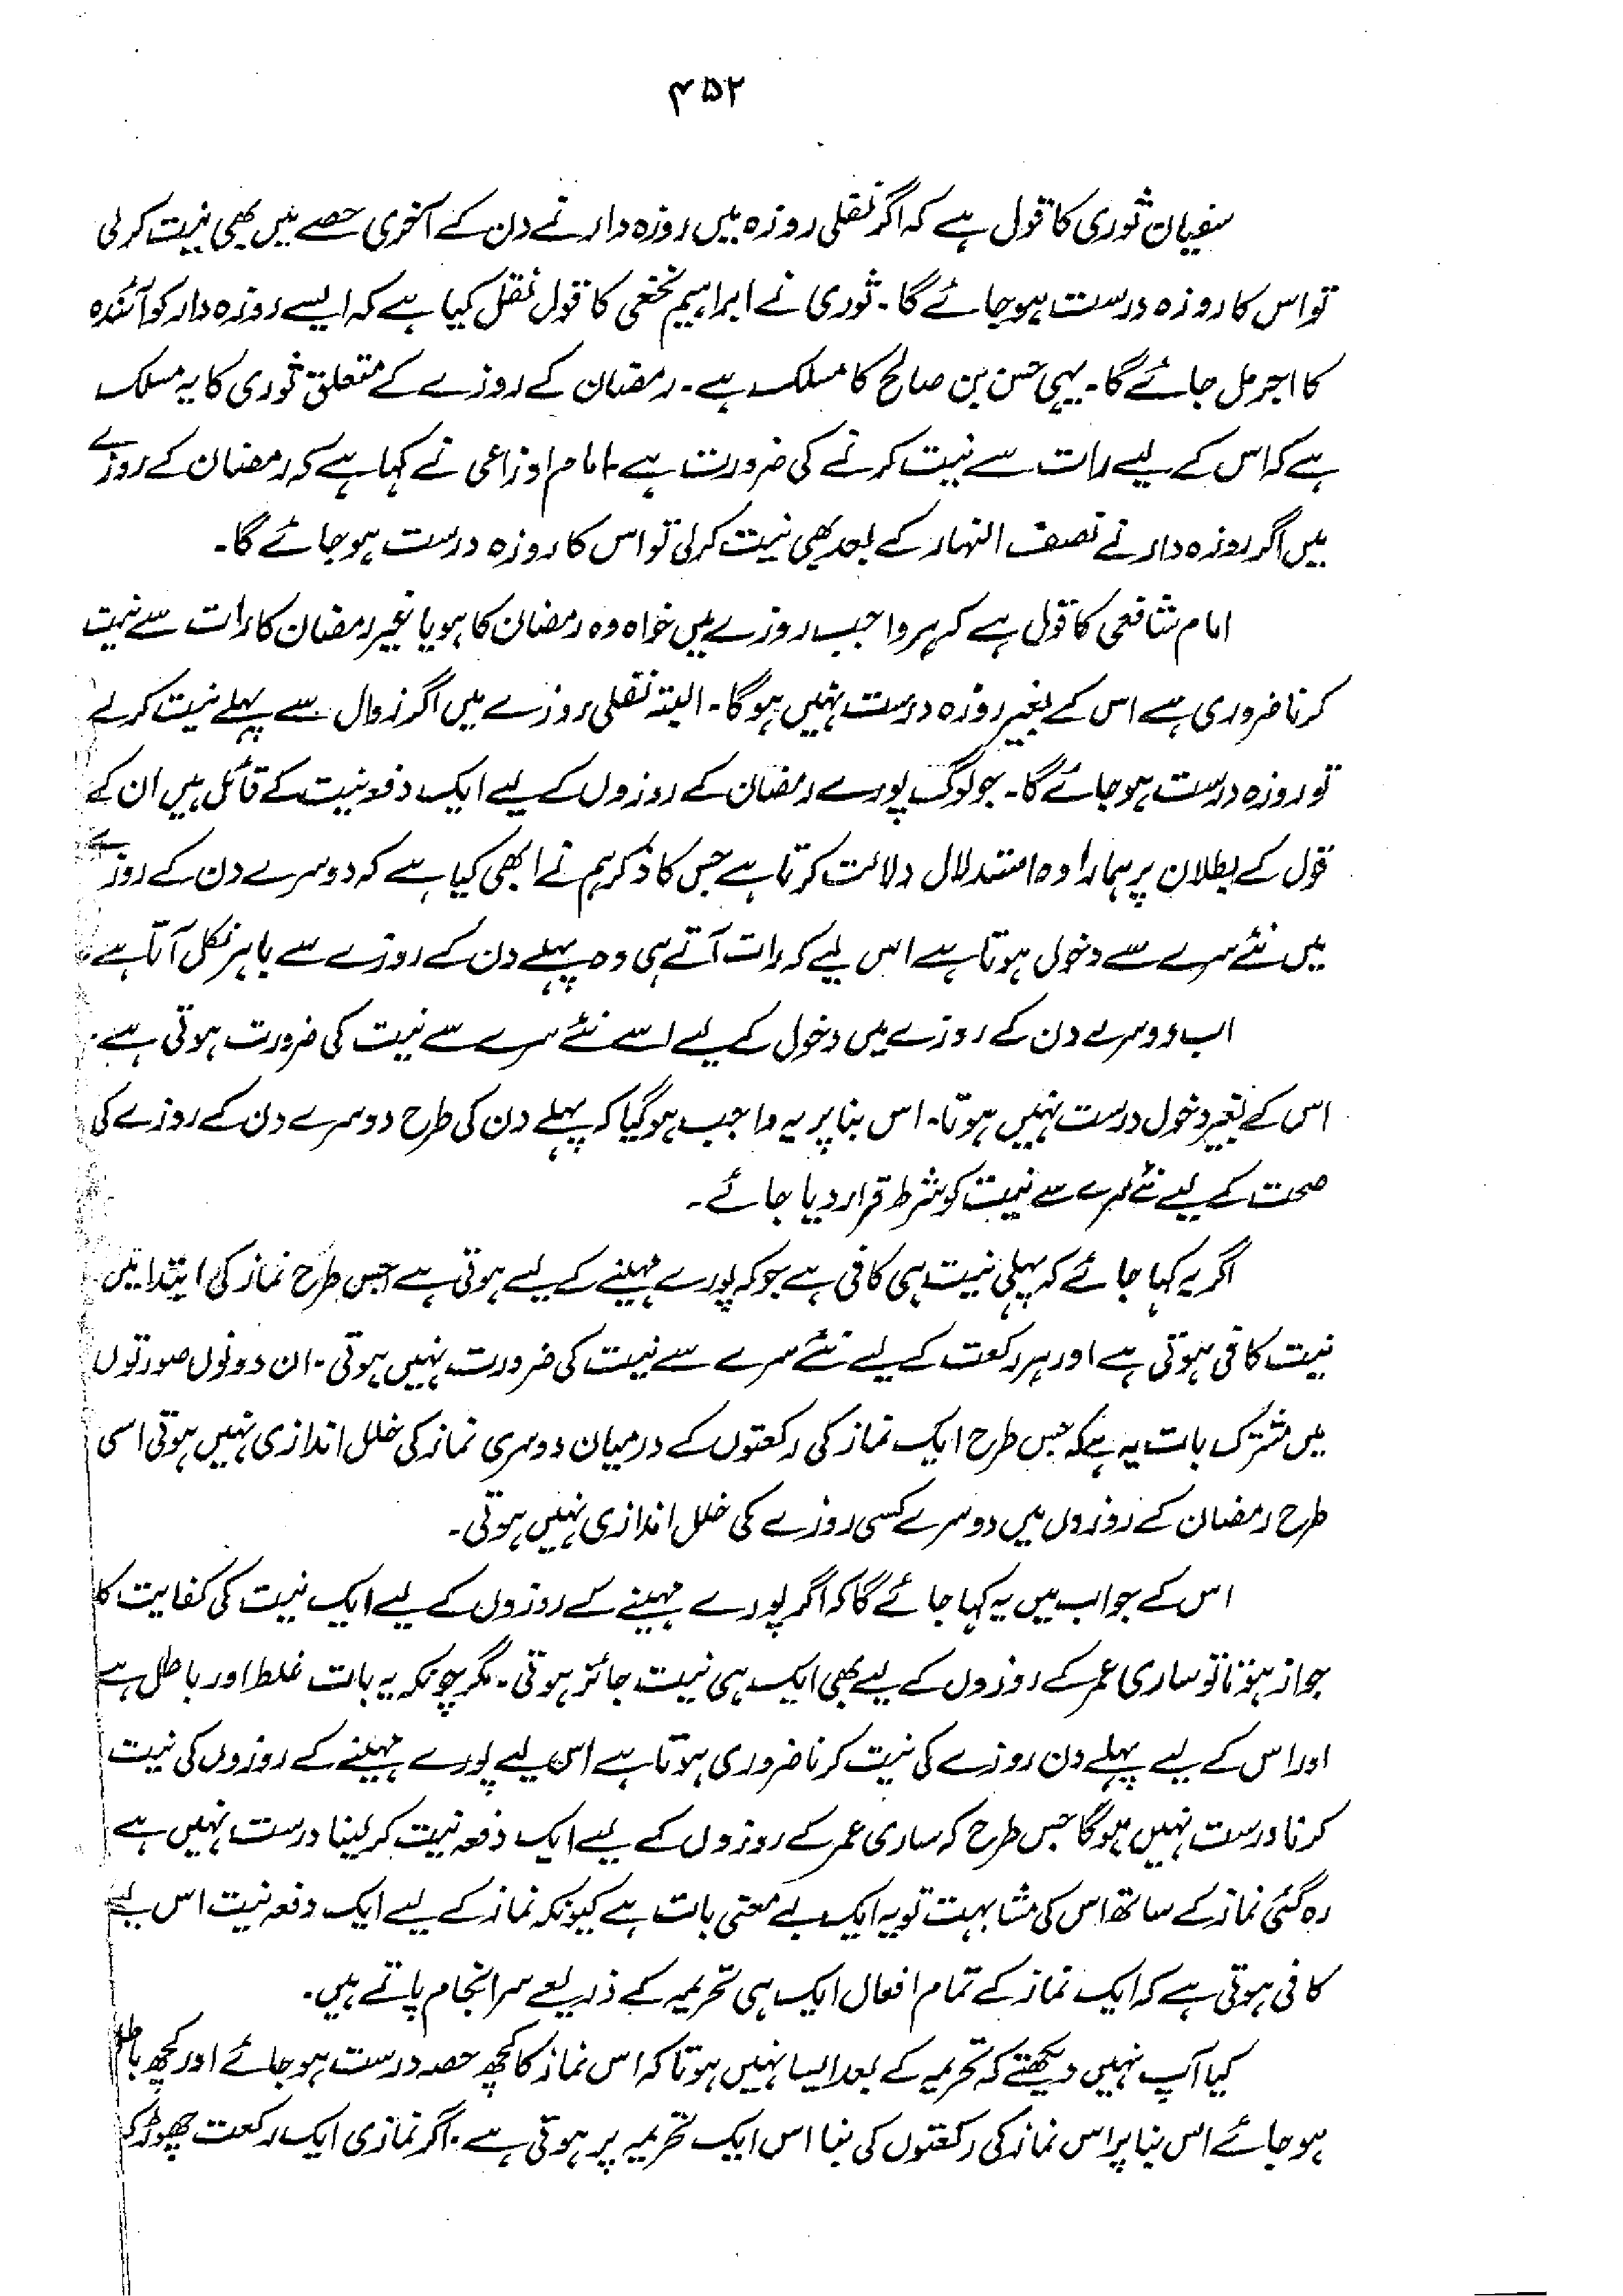 ۴۵۲
سفیان ثوری کا قول ہے کہ اگر نفلی روزہ میں روزہ دار نے دن کے آخری حصے میں بھی نیت کرلی
تو اس کا روزہ درست ہو جائے گا۔ ثوری نے ابراہیم نخعی کا قول نقل کیا ہے کہ ایسے روزہ دار کو آئندہ
کا اجر مل جائے گا۔ یہی حسن بن صالح کا مسلک ہے۔ رمضان کے روزے کے متعلق ثوری کا یہ مسلک
ہے کہ اس کے لیے رات سے نیت کرنے کی ضرورت ہے۔ امام اوزاعی نے کہا ہے کہ رمضان کے روزے
میں اگر روزہ دار نے نصف النہار کے بعد بھی نیت کرلی تو اس کا روزہ درست ہو جائے گا۔
امام شافعی کا قول ہے کہ ہر واجب روزے میں خواہ وہ رمضان کا ہو یا غیر رمضان کا رات سے نیت
کرنا ضروری ہے اس کے بغیر روزہ درست نہیں ہوگا۔ البتہ نفلی روزے میں اگر زوال سے پہلے نیت کرلے
تو روزہ درست ہو جائے گا۔ جو لوگ پورے رمضان کے روزوں کے لیے ایک دفعہ نیت کے قائل ہیں ان کے
قول کے بطلان پر ہمارا وہ استدلال دلالت کرتا ہے جس کا ذکر ہم نے ابھی کیا ہے کہ دوسرے دن کے روزے
میں نئے سرے سے دخول ہوتا ہے اس لیے کہ رات آتے ہی وہ پہلے دن کے روزے سے باہر نکل آتا ہے۔
اب دوسرے دن کے روزے میں دخول کے لیے اسے نئے سرے سے نیت کی ضرورت ہوتی ہے۔
اس کے بغیر دخول درست نہیں ہوتا۔ اس بنا پر یہ واجب ہو گیا کہ پہلے دن کی طرح دوسرے دن کے روزے کی
صحت کے لیے نئے سرے سے نیت کو شرط قرار دیا جائے۔
اگر یہ کہا جائے کہ پہلی نیت ہی کافی ہے جو کہ پورے مہینے کے لیے ہوتی ہے جس طرح نماز کی ابتدا میں
نیت کافی ہوتی ہے اور ہر رکعت کے لیے نئے سرے سے نیت کی ضرورت نہیں ہوتی۔ ان دونوں صورتوں
میں مشترک بات یہ ہے کہ جس طرح ایک نماز کی رکعتوں کے درمیان دوسری نماز کی خلل اندازی نہیں ہوتی اسی
طرح رمضان کے روزوں میں دوسرے کسی روزے کی خلل اندازی نہیں ہوتی۔
اس کے جواب میں یہ کہا جائے گا کہ اگر پورے مہینے کے روزوں کے لیے ایک نیت کی کفایت کا
جواز ہوتا تو ساری عمر کے روزوں کے لیے بھی ایک ہی نیت جائز ہوتی۔ مگر چونکہ یہ بات غلط اور باطل ہے
اور اس کے لیے پہلے دن روزے کی نیت کرنا ضروری ہوتا ہے اس لیے پورے مہینے کے روزوں کی نیت
کرنا درست نہیں ہوگا جس طرح کہ ساری عمر کے روزوں کے لیے ایک دفعہ نیت کرلینا درست نہیں ہے
رہ گئی نماز کے ساتھ اس کی مشابہت تو یہ ایک بے معنی بات ہے کیونکہ نماز کے لیے ایک دفعہ نیت اس لیے
کافی ہوتی ہے کہ ایک نماز کے تمام افعال ایک ہی تحریمہ کے ذریعے سرانجام پاتے ہیں۔
کیا آپ نہیں دیکھتے کہ تحریمہ کے بعد ایسا نہیں ہوتا کہ اس نماز کا کچھ حصہ درست ہو جائے اور کچھ باطل
ہو جائے اس بنا پر اس نماز کی رکعتوں کی بنا اس ایک تحریمہ پر ہوتی ہے۔ اگر نمازی ایک رکعت چھوڑ کر